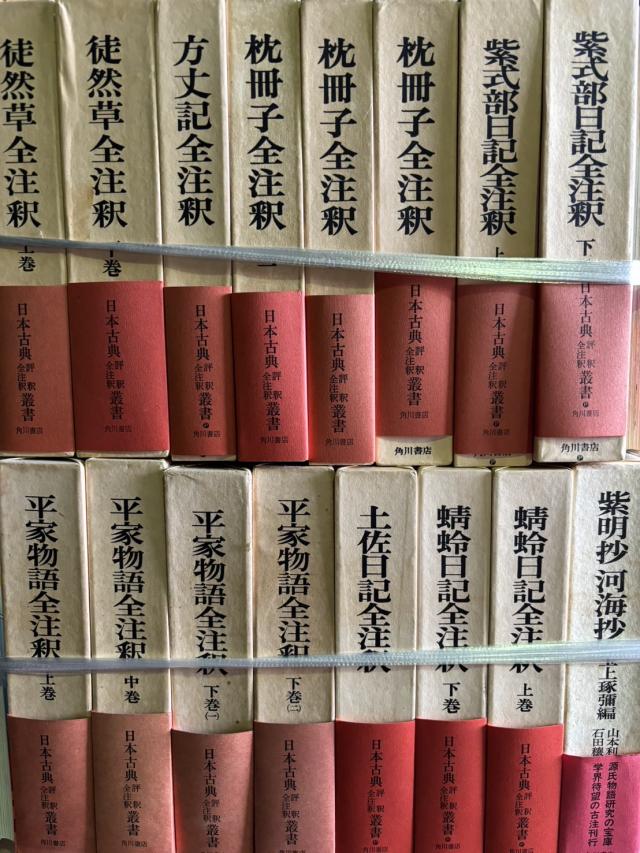 徒然草全注釈
上巻
日本古典評釈全注釈叢書
角川書店
徒然草全注釈
下巻
日本古典評釈全注釈叢書
角川書店
方丈記全注釈
日本古典評釈全注釈叢書
角川書店
枕冊子全注釈
一
日本古典評釈全注釈叢書
角川書店
枕冊子全注釈
日本古典評釈全注釈叢書
角川書店
枕冊子全注釈
日本古典評釈全注釈叢書
角川書店
角川書店
紫式部日記全注釈
上
日本古典評釈全注釈叢書
角川書店
紫式部日記全注釈
下
日本古典評釈全注釈叢書
角川書店
角川書店
平家物語全注釈
上巻
日本古典評釈全注釈叢書
角川書店
平家物語全注釈
中巻
日本古典評釈全注釈叢書
角川書店
平家物語全注釈
下巻(一)
日本古典評釈全注釈叢書
角川書店
平家物語全注釈
下巻(二)
日本古典評釈全注釈叢書
角川書店
土佐日記全注釈
日本古典評釈全注釈叢書
角川書店
蜻蛉日記全注釈
下巻
日本古典評釈全注釈叢書
角川書店
蜻蛉日記全注釈
上巻
日本古典評釈全注釈叢書
角川書店
紫明抄 河海抄
上琢彌編
山本利
石田穣
源氏物語研究の宝庫
学界待望の古注刊行